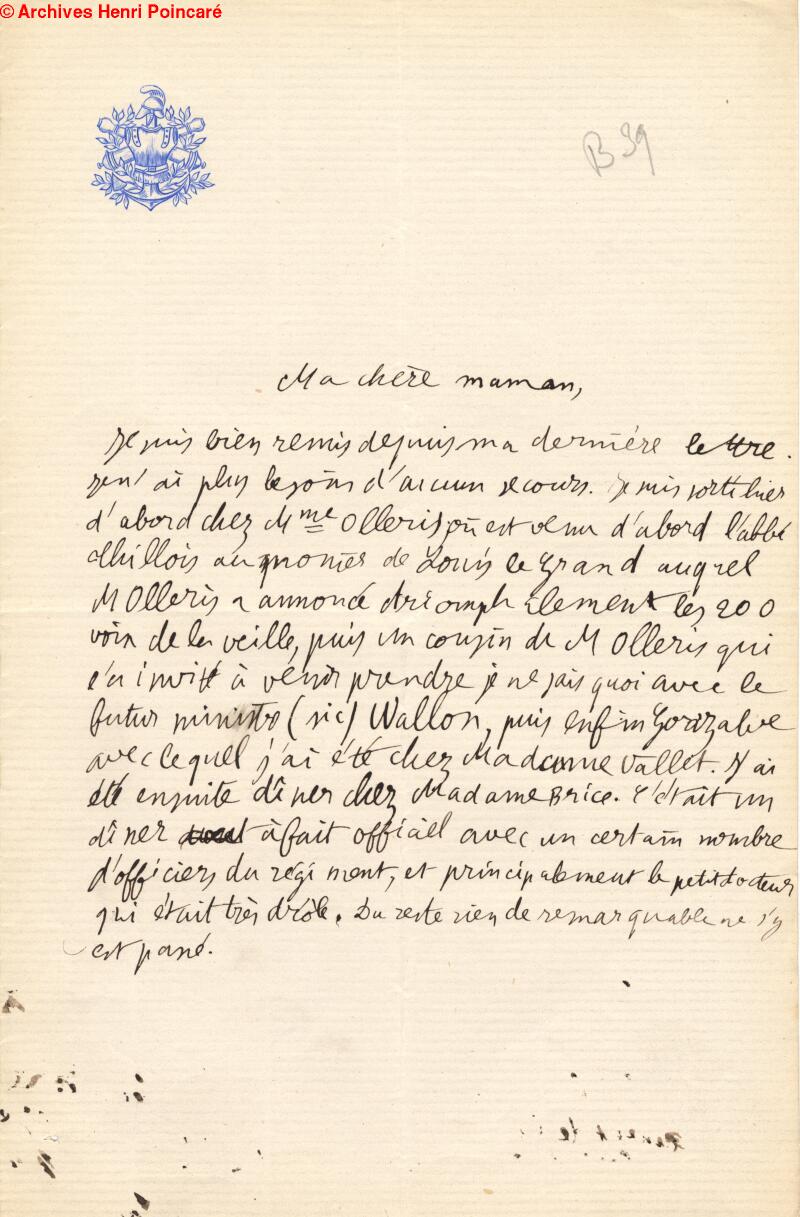 © Archives Henri Poincaré
B 39
Ma chère maman,
Je suis bien remis depuis ma dernière lettre.
je n'ai plus besoin d'aucun secours. Je suis sorti hier
d'abord chez Mme Olleris où est venu d'abord l'abbé
aumonier de Louis le Grand auquel
M Olleris a annoncé triomphalement les 200
voix de la veille, puis un cousin de M Olleris qui
m'a invité à venir prendre je ne sais quoi avec le
futur ministre (sic) Wallon, puis enfin Gonzalve
avec lequel j'ai été chez Madame Vallet. J'ai
été ensuite dîner chez Madame Brice. C'était un
dîner tout à fait officiel avec un certain nombre
d'officiers du régiment, et principalement le petit docteur
qui était très drôle. Du reste rien de remarquable ne s'y
est passé.